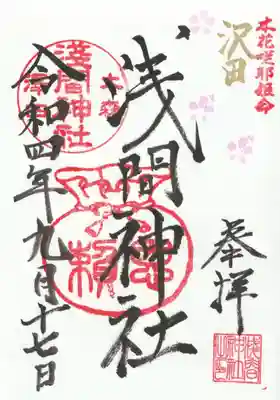 木花咲耶姫命
沢田
奉拝
浅間神社
令和四年九月十七日
浅間神社